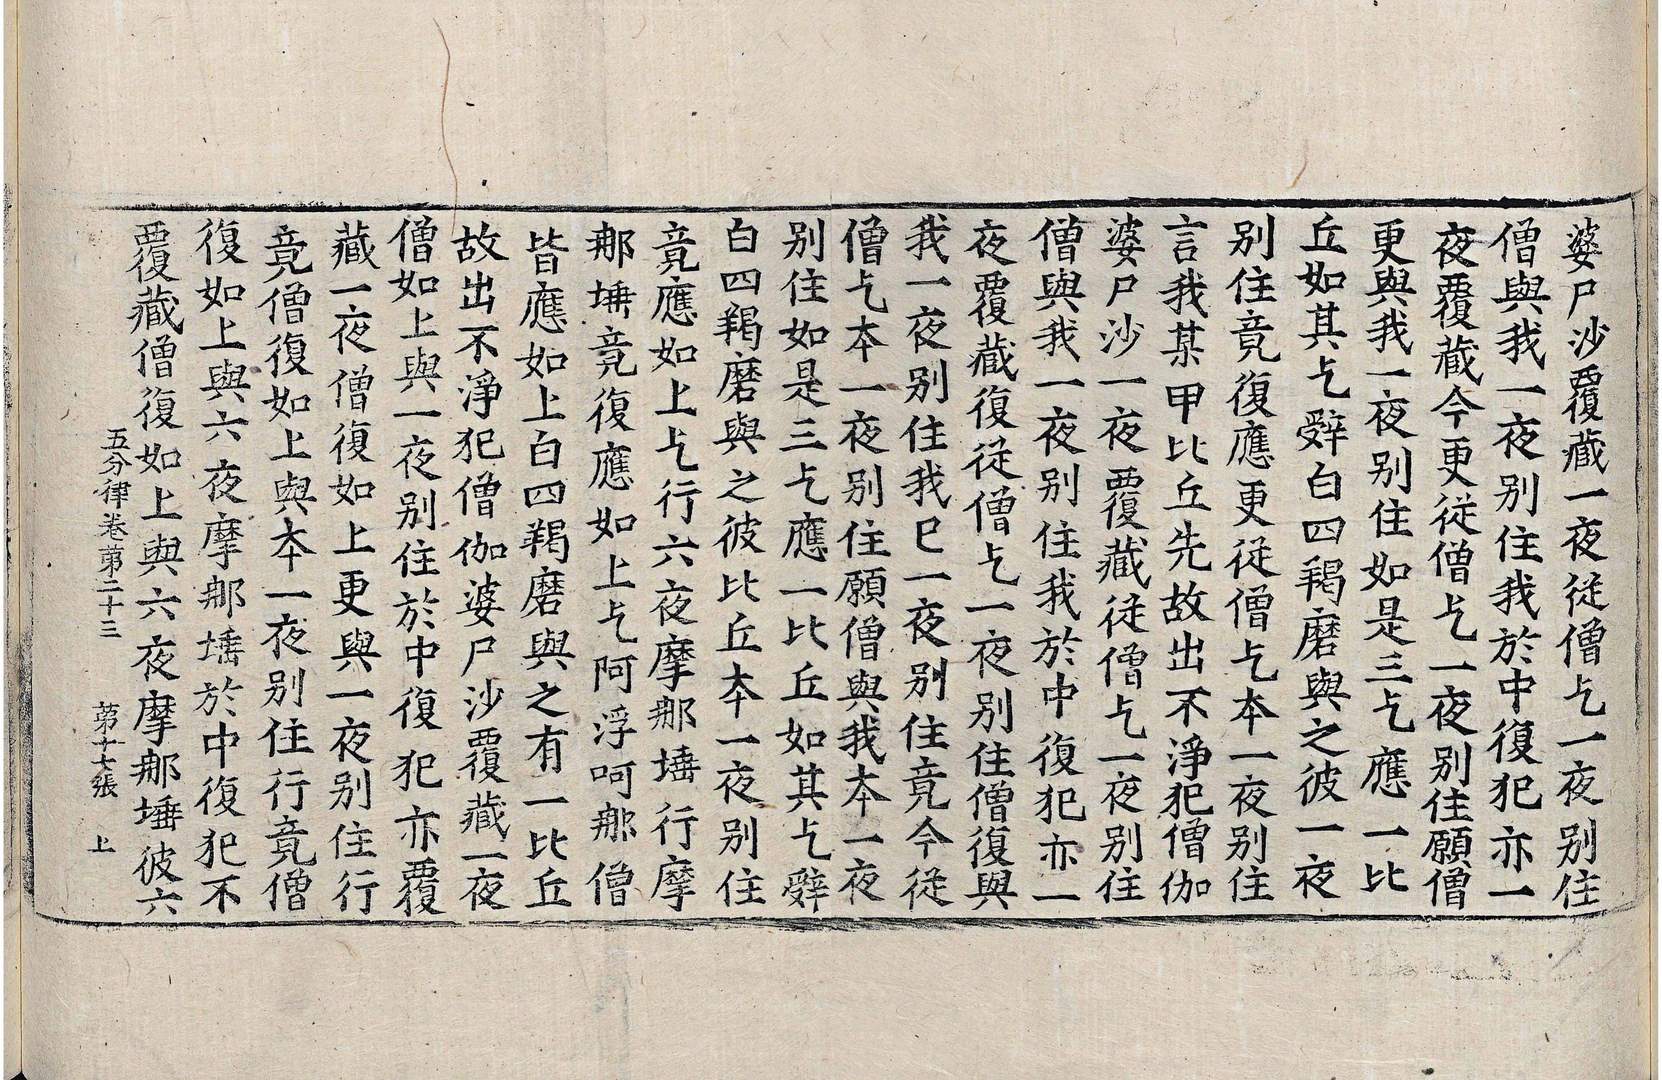 婆尸沙覆藏一夜従僧乞一夜別住
僧與我一夜別住我於中復犯亦一
夜覆藏今更従僧乞一夜別住願僧
更與我一夜別住如是三乞應一比
丘如其乞辤白四羯磨與之彼一夜
別住竟復應更従僧乞夲一夜別住
言我某甲比丘先故出不淨犯僧伽
婆尸沙一夜覆藏従僧乞一夜別住
僧與我一夜別住我於中復犯亦一
夜覆藏復従僧乞一夜別住僧復與
我一夜別住我巳一夜別住竟今従
僧乞夲一夜別住願僧與我夲一夜
別住如是三乞應一比丘如其乞辤
白四羯磨與之彼比丘夲一夜別住
竟應如上乞行六夜摩那埵行摩
那埵竟復應如上乞阿浮呵那僧
皆應如上白四羯磨與之有一比丘
故出不淨犯僧伽婆尸沙覆藏一夜
僧如上與一夜別住於中復犯亦覆
藏一夜僧復如上更與一夜別住行
竟僧復如上與夲一夜別住行竟僧
復如上與六夜摩那埵於中復犯不
覆藏僧復如上與六夜摩那埵彼六
五分律卷第二十三 第十七張 上